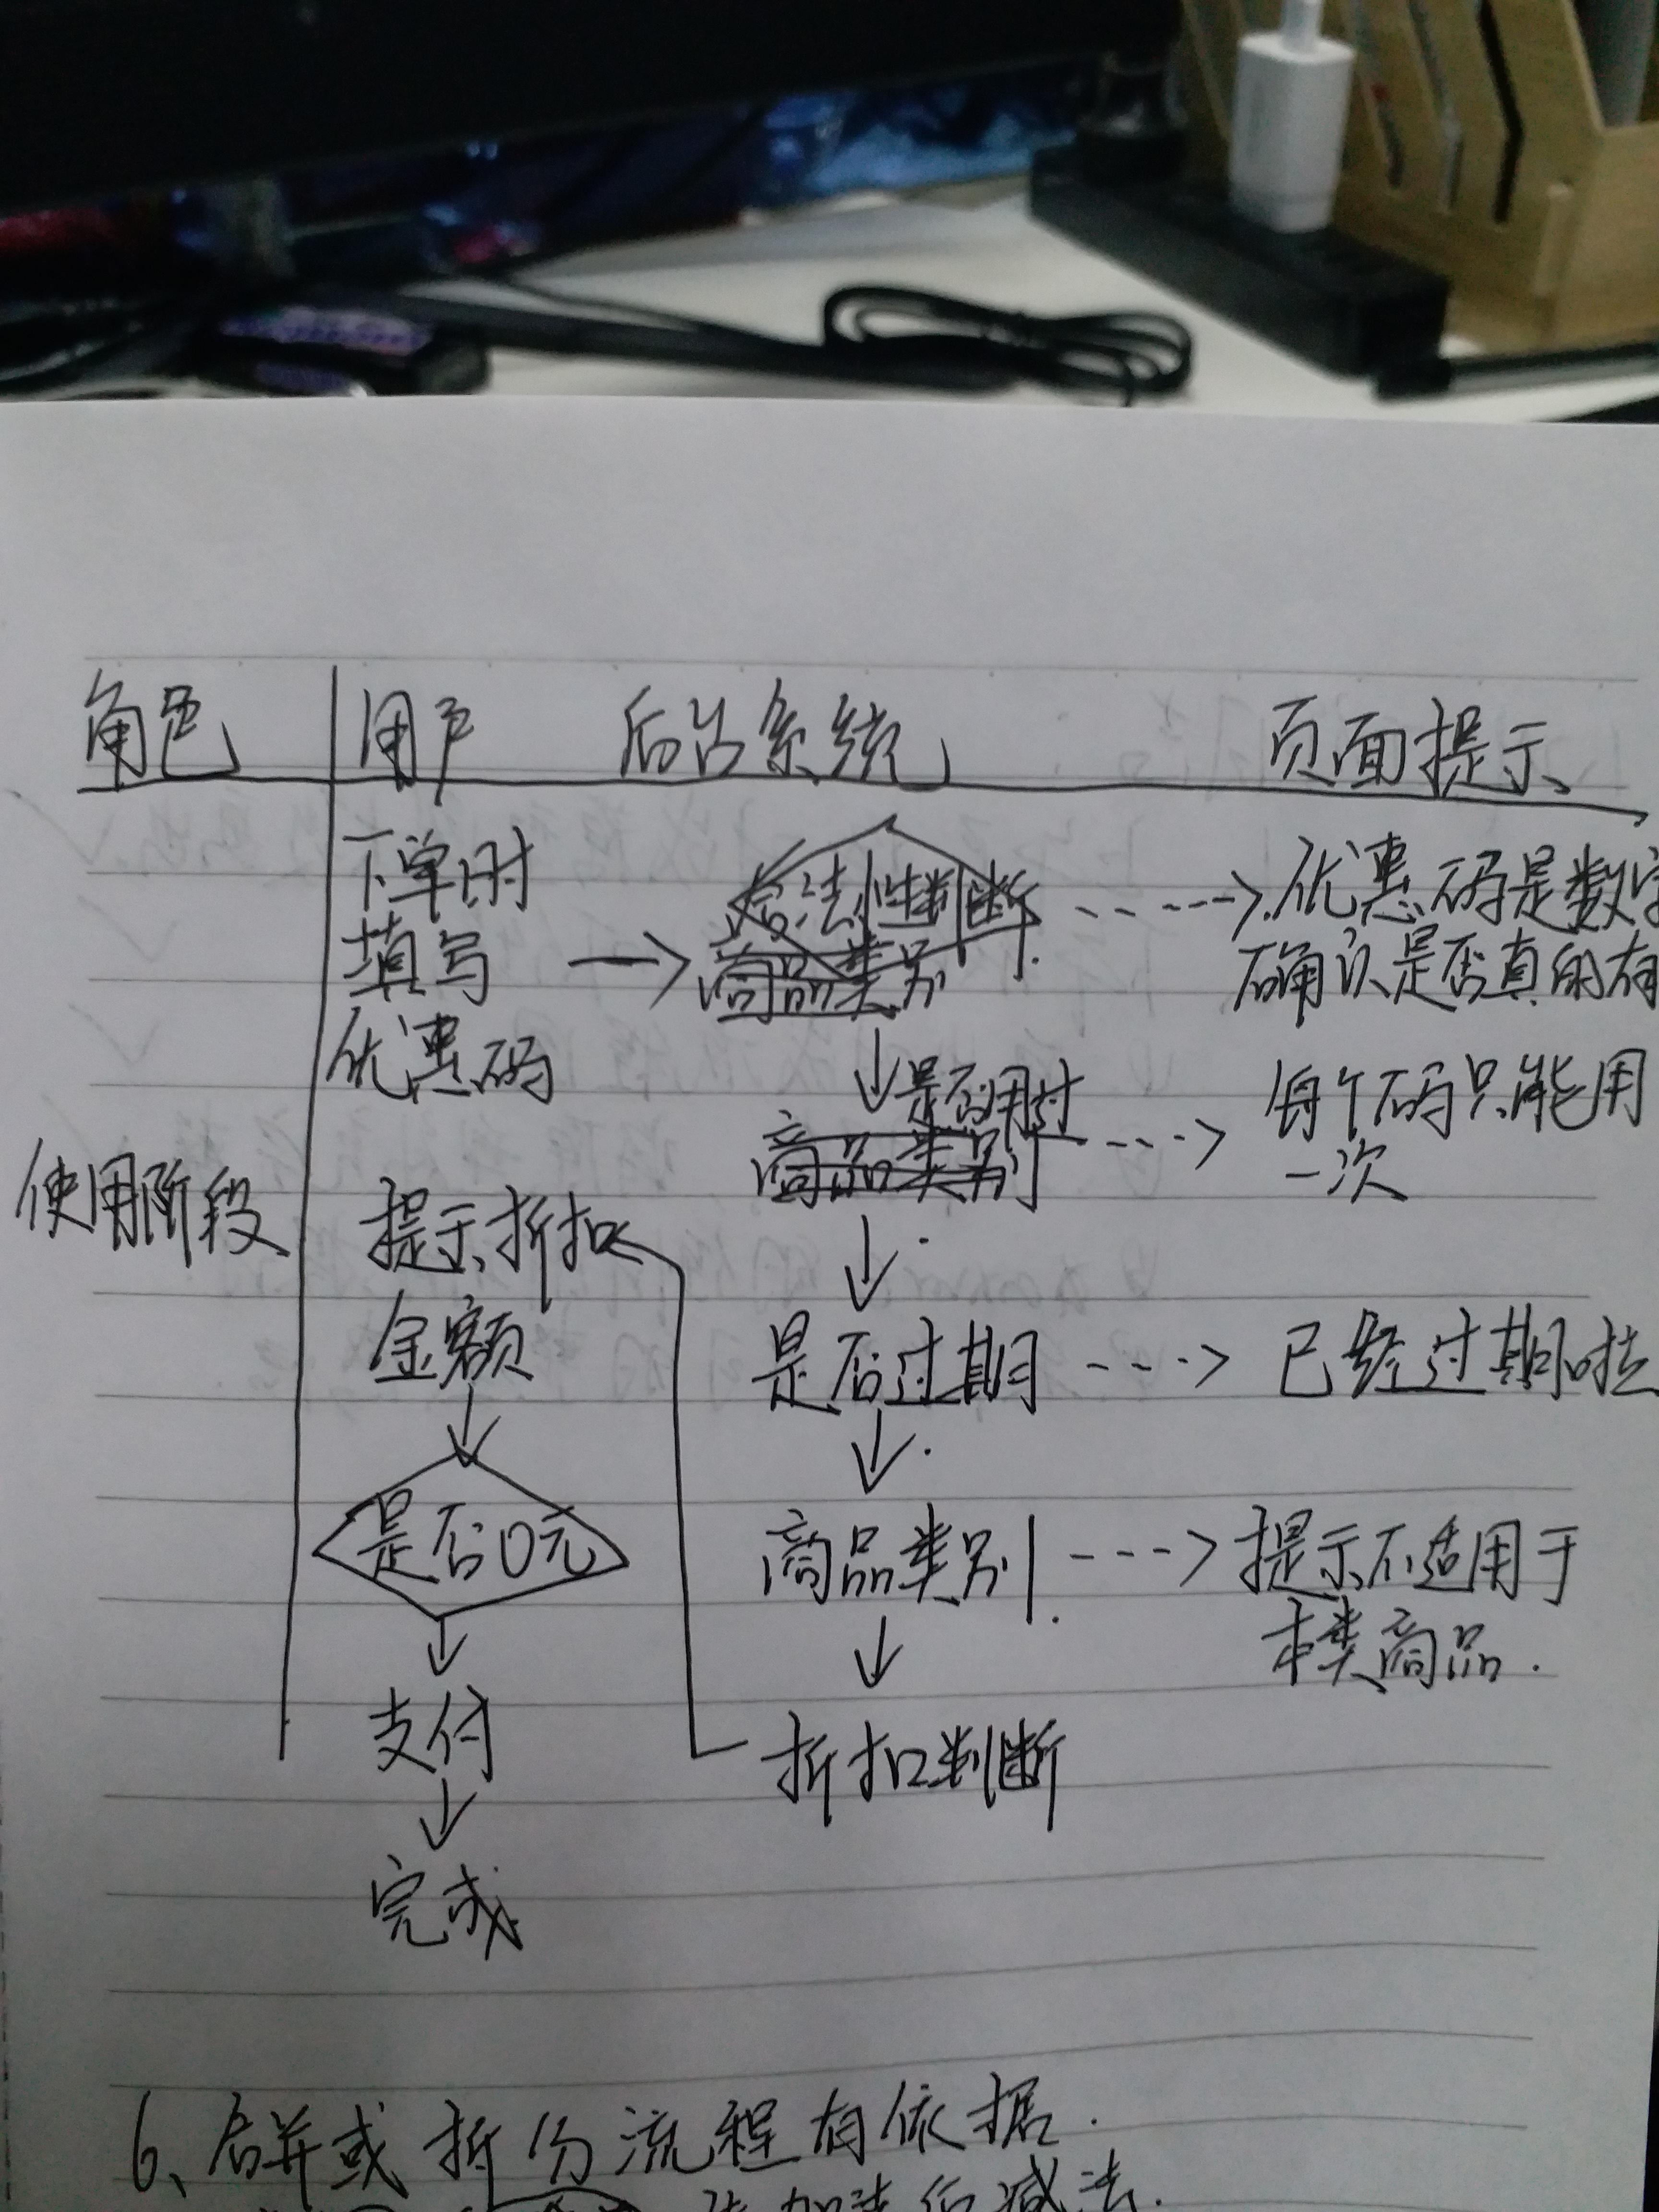 角色 用户 后台系统 页面提示
下单时
填写
优惠码
合法性判断
商品类别
优惠码是数字
确认是否真的有
是否用过
商品类别
每个码只能用
一次
使用阶段
提示折扣
金额
是否过期
已经过期啦
是否0元
商品类别
提示不适用于
本类商品.
支付
折扣判断
完成
6、合并或拆分流程有依据.
加法后减法.